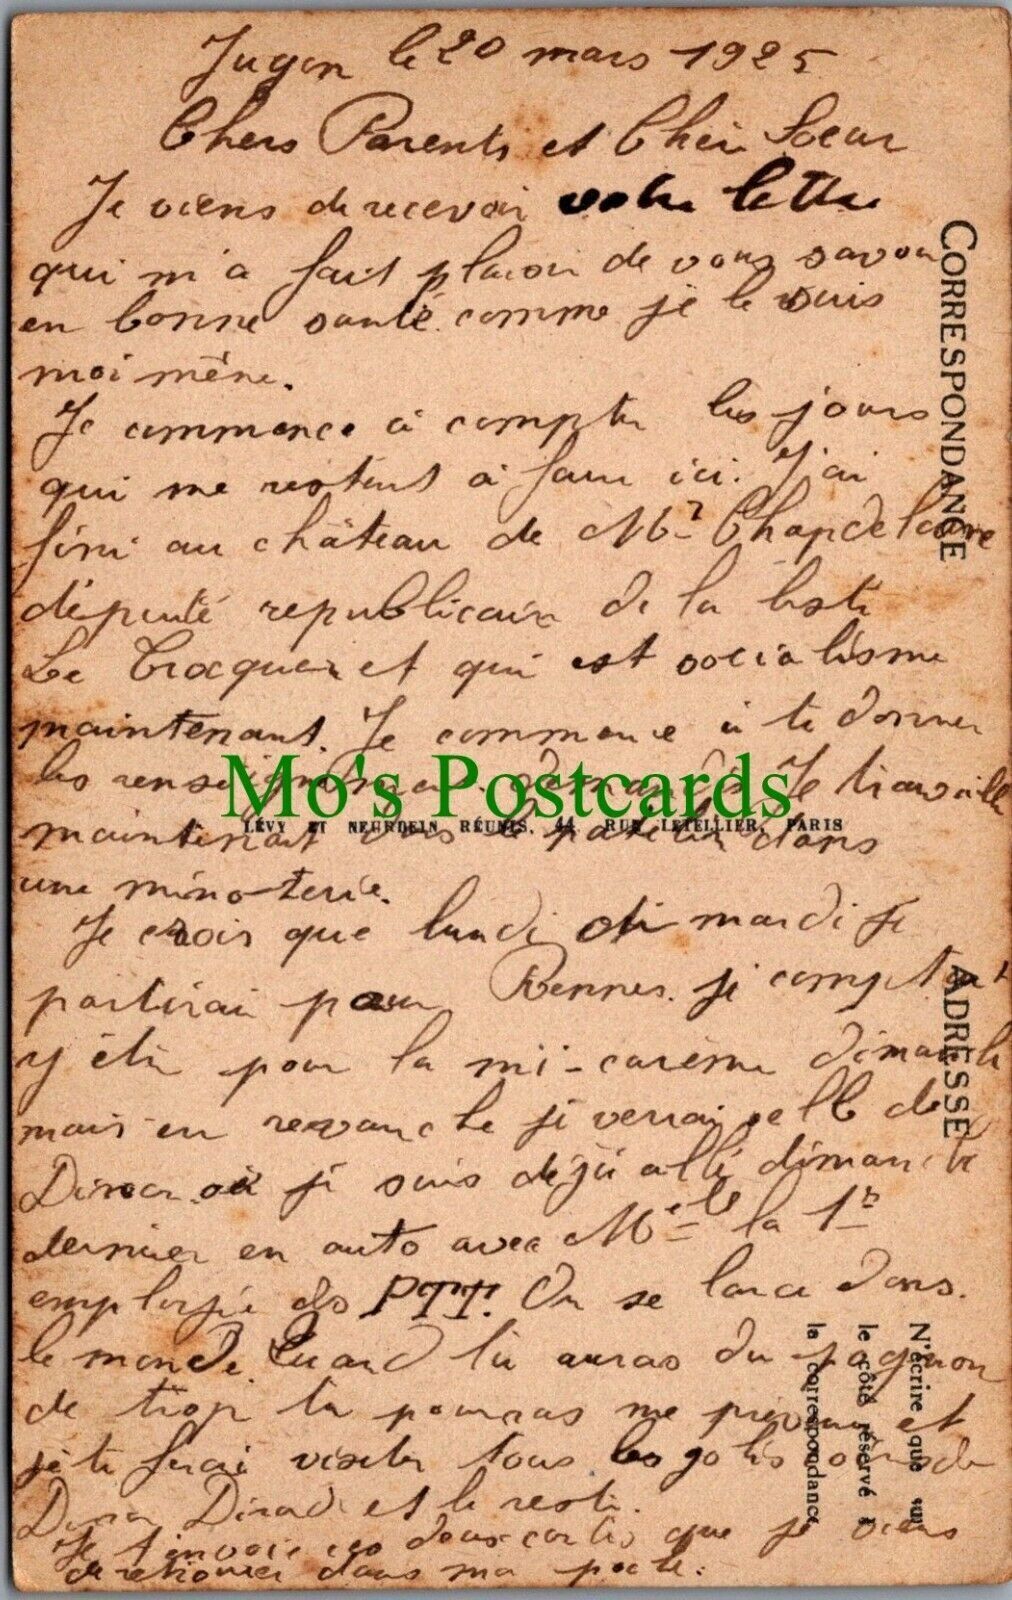 Jugon le 20 mars 1925
Chers Parents et Chèr Soeur
Je viens de recevoir votre lettre
qui m'a fait plaisir de vous savoir
en bonne santé comme je le suis
moi même.
Je commence à compter les jours
qui me restent à faire ici. J'ai
fini au château de Mr Chapdelaine
député republicain de la liste
Le Trocquer et qui est socialisme
maintenant. Je commence à te donner
les renseignements demandés Je travaille
maintenant dans
une minoterie.
Je crois que lundi ou mardi je
partirai pour Rennes. je comptais
y être pour la mi-carème dimanche
mais en revanche je verrai celle de
Dinan où je suis déjà allé dimanche
dernier en auto avec Melle la 1re
employée des PTT. On se lance dans
le monde. Quand tu auras du pognon
de trop tu pourras me prévenir et
je te ferai visiter tous les jolis coins de
Dinan Dinard et le reste.
Je t'envoie ces deux cartes que je viens
de retrouver dans ma poche.
CORRESPONDANCE
ADRESSE
N'écrire que sur
le côté réservé à
la correspondance
LÉVY ET NEURDEIN RÉUNIS, 44, RUE LETELLIER, PARIS
Mo's Postcards